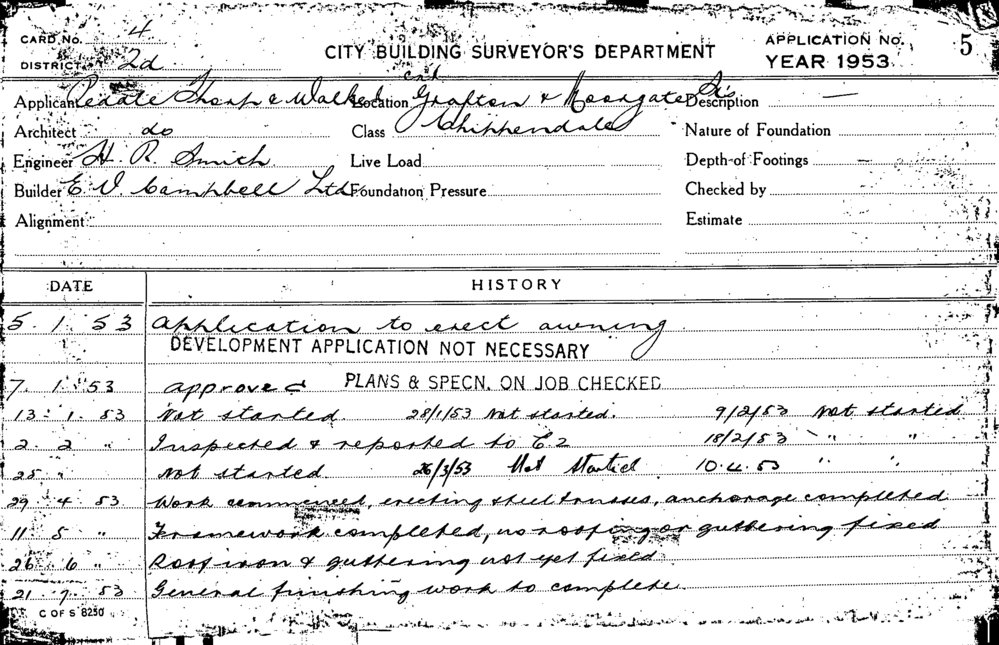 CARD No. 4
DISTRICT 2d
CITY BUILDING SURVEYOR'S DEPARTMENT
APPLICATION No. 5
YEAR 1953
Applicant Peddle Thorp & Walker Location cnr Grafton & Moorgate Sts Description —
Architect do Class Chippendale Nature of Foundation
Engineer H. R. Smith Live Load Depth of Footings —
Builder E V. Campbell Ltd Foundation Pressure Checked by
Alignment Estimate
DATE HISTORY
5. 1. 53 Application to erect awning
DEVELOPMENT APPLICATION NOT NECESSARY
7. 1. 53 approved PLANS & SPECN. ON JOB CHECKED
13. 1. 53 Not started 28/1/53 Not started. 9/2/53 Not started
2. 2 " Inspected & reported to C.2 18/2/53 " "
25 " Not started 26/3/53 Not Started 10.4.53 " "
29 4 53 Work commenced, erecting steel trusses, anchorage completed
11 5 " Framework completed, no roofing or guttering fixed
26 6 " Roof iron & guttering not yet fixed
21 7 53 General finishing work to complete.
C OF S 8250